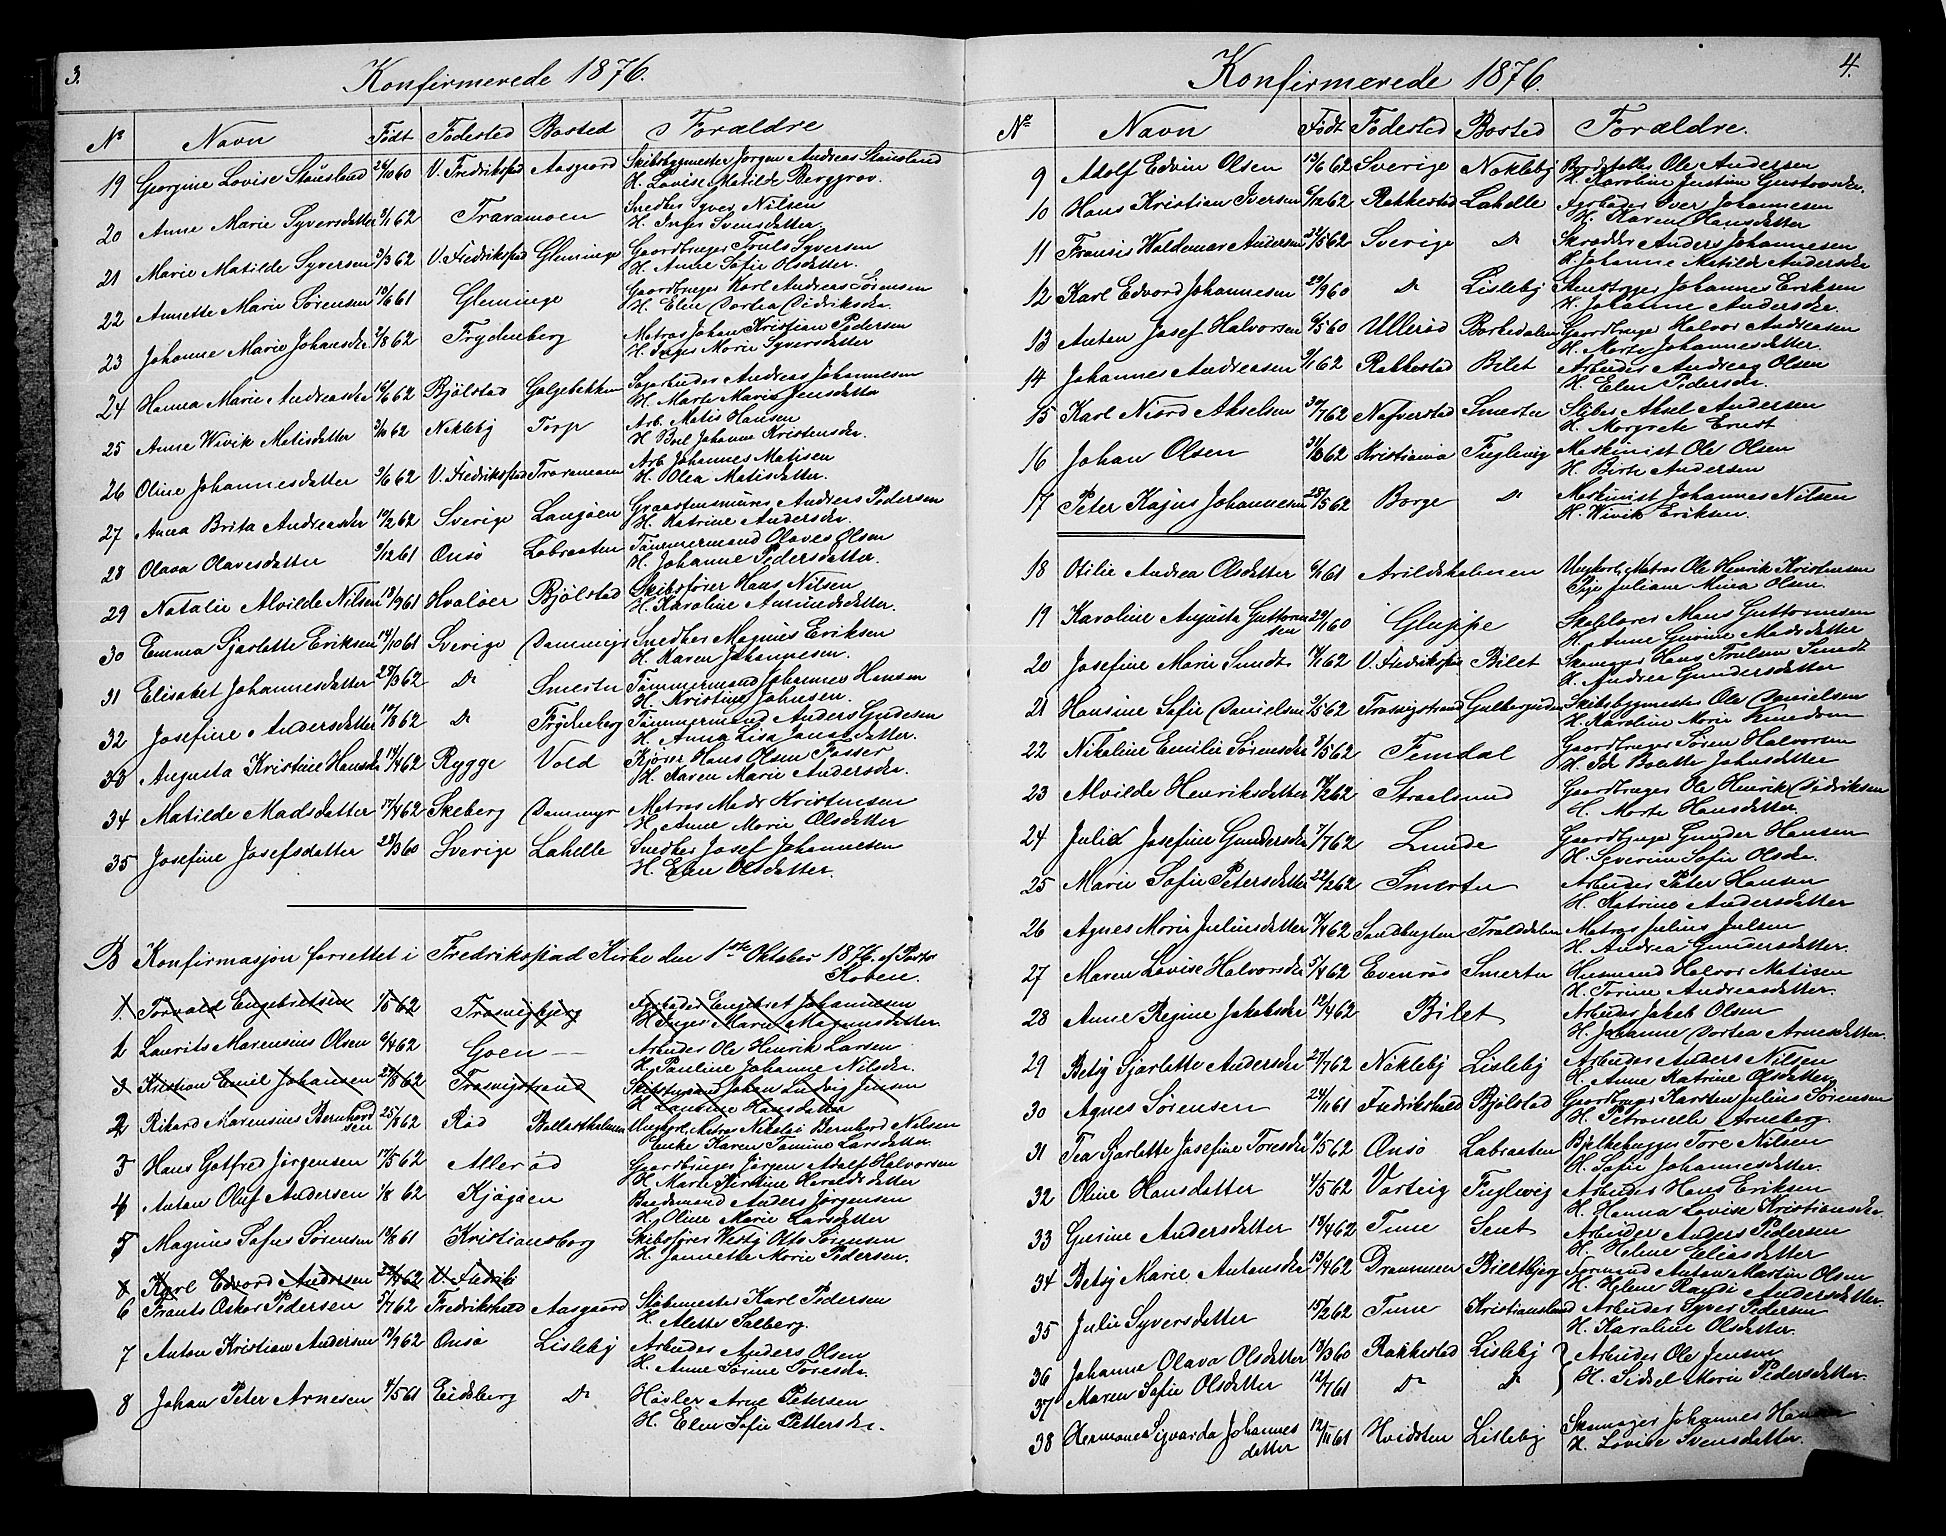 3.
Konfirmerede 1876.
Nº Navn Født Fødested Bosted Forældre
19 Georgine Lovise Stousland 24/10 60 V. Fredrikstad Aasgaard Skibsbygmester Jørgen Andreas Stousland
H. Lovise Matilde Berggrav.
20 Anne Marie Syversdatter 2/1 62 Traramoen Snedker Syver Nilsen
H. Inger Svensdatter
21 Marie Matilde Syversen 3/3 62 V. Fredrikstad Glemminge Gaardbruger Truls Syversen
H. Anne Sofie Olsdatter.
22 Annette Marie Sørensen 10/6 61 Gleminge Gaardbruger Karl Andreas Sørensen
H. Elen Dortea Didriksdr.
23 Johanne Marie Johansdr 2/8 62 Frydenberg Matros Johan Kristian Pedersen
H. Inger Marie Syversdatter
24 Hanna Marie Andreasdr 16/6 62 Bjølstad Galgebakken Sagarbeider Andreas Johannesen
H. Marte Marie Jensdatter
25 Anne Wivik Matisdatter 3/10 62 Nakleby Torp Arb. Matis Hansen
H. Berl. Johanne Kristensdr.
26 Oline Johannesdatter 3/6 62 V. Fredrikstad Traramoen Arb. Johannes Matisen
H. Olea Matisdatter.
27 Anna Brita Andreasdr 19/2 62 Sverige Langøen Graastensmurer Andreas Pedersen
H. Katrine Andersdr.
28 Olava Olavesdatter 9/12 61 Onsø Labraaten Tømmermand Olaves Olsen
H. Johanne Pedersdatter.
29 Natalie Alvilde Nilsen 13/9 61 Hvaløer Bjølstad Skibsfører Hans Nilsen
H. Karoline Amundsdatter.
30 Emma Sjarlotte Eriksen 14/10 61 Sverige Dammyr Snedker Magnus Eriksen
H. Karen Johannesen.
31 Elisabet Johannesdatter 28/3 62 Do Smertu Tømmermand Johannes Hansen
H. Kristine Johnsen.
32 Josefine Andersdatter 17/8 62 Do Frydenberg Tømmermand Anders Gudesen
H. Anna Lisa Jonasdatter.
33 Augusta Kristine Hansdr 14/4 62 Rygge Vold Kjører Hans Olsen Fosser
H. Karen Marie Andersdr.
34 Matilde Madsdatter 17/4 62 Skeberg Dammyr Matros Mads Kristensen
H. Anne Marie Olsdatter
35 Josefine Josefsdatter 28/3 60 Sverige Lahelle Snedker Josef Johannesen
H. Elen Olsdatter.
B Konfirmasjon forrettet i Fredrikstad Kirke den 1ste Oktober 1876 af Pastor
Koben.
1. Torvald Engebretsen 1/5 62 Trosvigbjerg Arbeider Engebret Johannesen
H. Inger Marie Magnusdatter.
1 Laurits Marensius Olsen 9/4 62 Goen Arbeider Ole Henrik Larsen
H. Pauline Johanne Nilsdr.
3 Kristian Emil Johansen 21/8 62 Trosvigstrand Skibstømm. Johan Ludvig Jensen
H. Laurine Hansdatter
2 Rikard Marensius Bernhard
sen 25/8 62 Rød Ballastholmen Ungkarl, Matros Nikolai Bernhard Nilsen
Enke Karen Tomine Larsdatter.
3 Hans Gotfred Jørgensen 17/5 62 Allerød Gaardbruger Jørgen Adolf Halvorsen
H. Marte Kirstine Haraldsdatter
4 Anton Oluf Andersen 1/8 62 Kjøgøen Baadsmand Anders Jørgensen
H. Oline Marie Larsdatter
5 Magnus Sofus Sørensen 19/8 61 Kristiansborg Skibsfører Vestby Otto Sørensen
H. Jannette Marie Pedersen.
8 Karl Edvard Andersen 29/4 62 V. Fredrik
6 Frants Oskar Pedersen 3/7 62 Fredrikshald Aasgaard Støbemester Karl Pedersen
H. Alette Solberg.
7 Anton Kristian Andersen 19/9 62 Onsø Lisleby Arbeider Anders Olsen
H. Anne Sørine Toresdr.
8 Johan Peter Arnesen 4/5 61 Eidsberg Do Høvler Arne Petersen
H. Elen Sofie Pettersdr.
4.
Konfirmerede 1876.
Nº Navn Født Fødested Bosted Forældre.
9 Adolf Edvin Olsen 13/6 62 Sverige Nakleby Bordstabler Ole Andersen
H. Karoline Justine Gustavsdr.
10 Hans Kristian Iversen 6/12 62 Rakkestad Lahelle Sagarbeider Iver Johannesen
H. Karen Hansdatter
11 Fransis Waldemar Andersen 24/5 62 Sverige Do Skrædder Anders Johannesen
H. Johanne Matilde Andersdr
12 Karl Edvard Johannesen 29/9 60 Do Lisleby Stenbryger Johannes Eriksen
H. Johanne Andersdr.
13 Anton Josef Halvorsen 6/5 60 Ullerød Borkedalen Gaardbruger Halvor Andreasen
H. Marte Johannesdatter.
14 Johannes Andreasen 9/1 62 Rakkestad Bilet Arbeider Andreas Olsen
H. Elen Pedersdr.
15 Karl Niord Akselsen 30/7 62 Nafverstad Smertu Sliber Aksel Andersen
H. Margrete Ernst
16 Johan Olsen 31/8 62 Kristiania Fuglevig Maskinist Ole Olsen
H. Berte Andersen
17 Peter Kajus Johannesen 28/5 62 Borge Do Maskinist Johannes Nilsen
H. Wivik Eriksen.
18 Otilie Andrea Olsdatter 6/1 61 Arildsholmen Ungkarl, Matros Ole Henrik Kristensen
Pige Juliane Mina Olsen.
19 Karoline Augusta Guttorm
sen 29/1 60 Gluppe Skoelærer Mons Guttormsen
H. Anne Gurine Madsdatter
20 Josefine Marie Sundt 11/1 62 V. Fredrikstad Bilet Skomager Hans Trulsen Sundt
H. Andrea Gundersdatter
21 Hansine Sofie Danielsen 3/5 62 Trosvigstrand Gulbergsiden Skibsbygmester Ole Danielsen
H. Karoline Marie Simensen
22 Nikoline Emilie Sørensdr 3/5 62 Femdal Gaardbruger Søren Halvorsen
H. Ida Bolette Johnsdatter
23 Alvilde Henriksdatter 19/2 62 Straalsund Gaardbruger Ole Henrik Didriksen
H. Marte Hansdatter
24 Julie Josefine Gundersdr 7/7 62 Lunde Gaardbruger Gunder Hansen
H. Severine Sofie Olsdr.
25 Marie Sofie Petersdatter 22/2 62 Smertu Arbeider Peter Hansen
H. Katrine Andersdatter
26 Agnes Marie Juliusdatter 11/4 62 Sandbugten Traldalen Matros Julius Julsen
H. Andrea Gundersdatter.
27 Maren Lovise Halvorsdr 5/4 62 Evenrød Smertu Husmand Halvor Matisen
H. Torine Andreasdatter.
28 Anne Regine Jakobsdr 12/4 62 Bilet Arbeider Jakob Olsen
H. Johanne Dortea Arnesdatter.
29 Betsy Sjarlotte Andersdr 21/7 62 Nakleby Lisleby Arbeider Anders Nilsen
H. Anne Katrine Olsdatter
30 Agnes Sørensen 24/11 61 Fredrikshald Bjølstad Gaardbruger Karsten Julius Sørensen
H. Petronelle Arneberg.
31 Tea Sjarlotte Josefine Toresdr 9/5 62 Onsø Labraaten Bjelkehugger Tore Nilsen
H. Sofie Johannesdatter.
32 Oline Hansdatter 4/5 62 Varteig Fuglevig Arbeider Hans Eriksen
H. Hanna Lovise Kristiansdr.
33 Gurine Andersdatter 13/4 62 Tune Sent Arbeider Anders Pedersen
H. Helene Eliasdatter
34 Betsy Marie Antonsdr 13/4 62 Drammen Biletbjerg Formand Anton Martin Olsen
H. Helene Randi Andersdatter.
35 Julie Syversdatter 15/2 62 Tune Kristianslund Arbeider Syver Pedersen
H. Karoline Olsdatter.
36 Johanne Olava Olsdatter 13/3 60 Rakkestad Lisleby Arbeider Ole Jensen
37 Maren Sofie Olsdatter 12/7 61 Do Do H. Sidsel Marie Pedersdatter.
38 Hermanea Sigvarda Johannes
datter 12/11 61 Hvidsten Lisleby Skomager Johannes Hansen
H. Lovise Svensdatter.